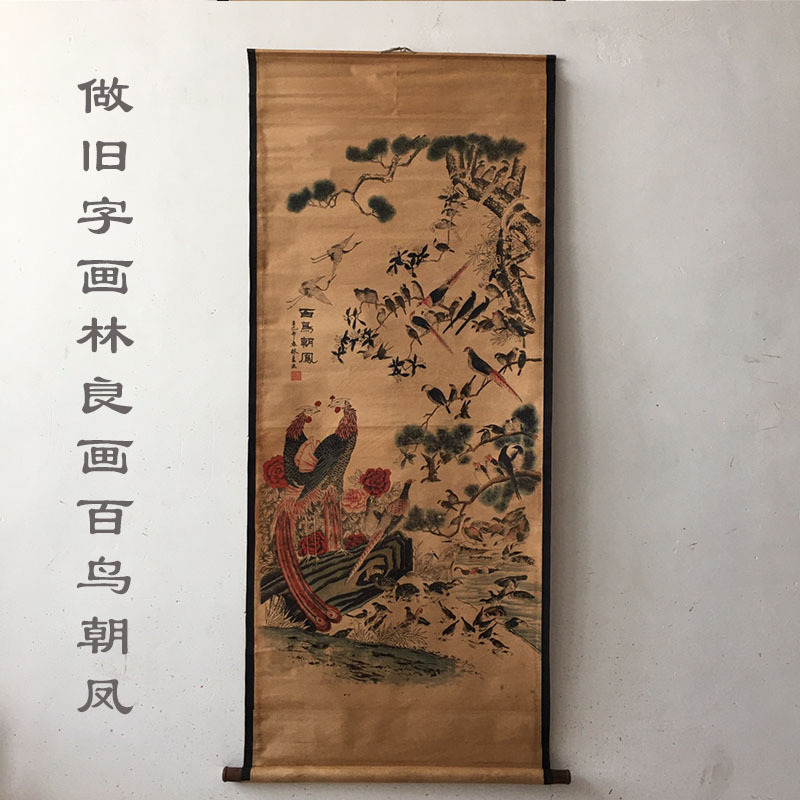 做旧字画林良画百鸟朝凤
百鳥朝鳳